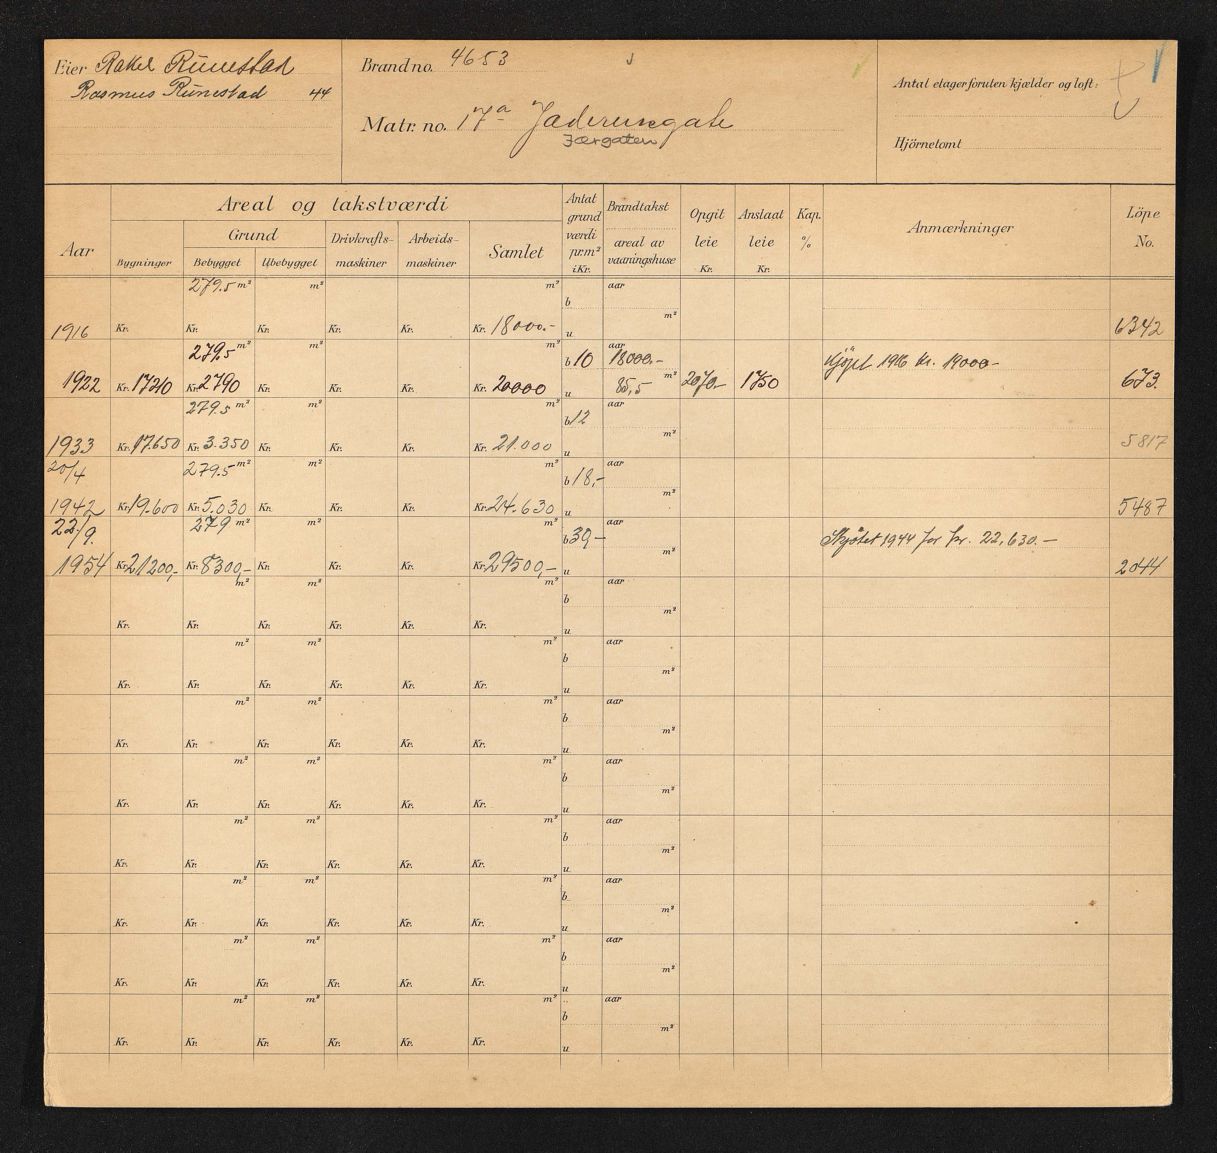 Eier Rakel Runestad
Rasmus Runestad 44
Brandno. 4653
Matr. no. 17a Jaderensgate
Jærgaten
Antal etager foruten kjælder og loft:
Hjörnetomt
Aar
Areal og takstværdi
Grund
Bygninger
Bebygget
Ubebygget
Drivkrafts-
maskiner
Arbeids-
maskiner
Samlet
Antat
grund
værdi
pr.m²
i Kr.
Brandtakst
areal av
vaaningshuse
Opgit
leie
Kr.
Anslaat
leie
Kr.
Kap.
%
Anmærkninger
Löpe
No.
279.5 m² m² m² b aar
1916 Kr. Kr. Kr. Kr. Kr. Kr. 18000.- u m² 6342
279.5 m² m² m² b 10 aar 18000.- Kjöpt 1916 kr. 19000-
1922 Kr. 17210 Kr. 2790 Kr. Kr. Kr. Kr. 20000 u 85,5 m² 2070.- 1750 673.
279.5 m² m² m² b 12 aar
1933 Kr. 17.650 Kr. 3.350 Kr. Kr. Kr. Kr. 21.000 u m² 5817
20/4 279.5 m² m² m² b 18,- aar
1942 Kr. 19.600 Kr. 5.030 Kr. Kr. Kr. Kr. 24.630 u m² 5487
22/9. 279 m² m² m² b 30,- aar Skjötet 1944 for kr. 22.630.-
1954 Kr. 21200,- Kr. 8300,- Kr. Kr. Kr. Kr. 29500,- u m² 2044
m² m² m² b aar
Kr. Kr. Kr. Kr. Kr. Kr. u m²
m² m² m² b aar
Kr. Kr. Kr. Kr. Kr. Kr. u m²
m² m² m² b aar
Kr. Kr. Kr. Kr. Kr. Kr. u m²
m² m² m² b aar
Kr. Kr. Kr. Kr. Kr. Kr. u m²
m² m² m² b aar
Kr. Kr. Kr. Kr. Kr. Kr. u m²
m² m² m² b aar
Kr. Kr. Kr. Kr. Kr. Kr. u m²
m² m² m² b aar
Kr. Kr. Kr. Kr. Kr. Kr. u m²
m² m² m² b aar
Kr. Kr. Kr. Kr. Kr. Kr. u m²